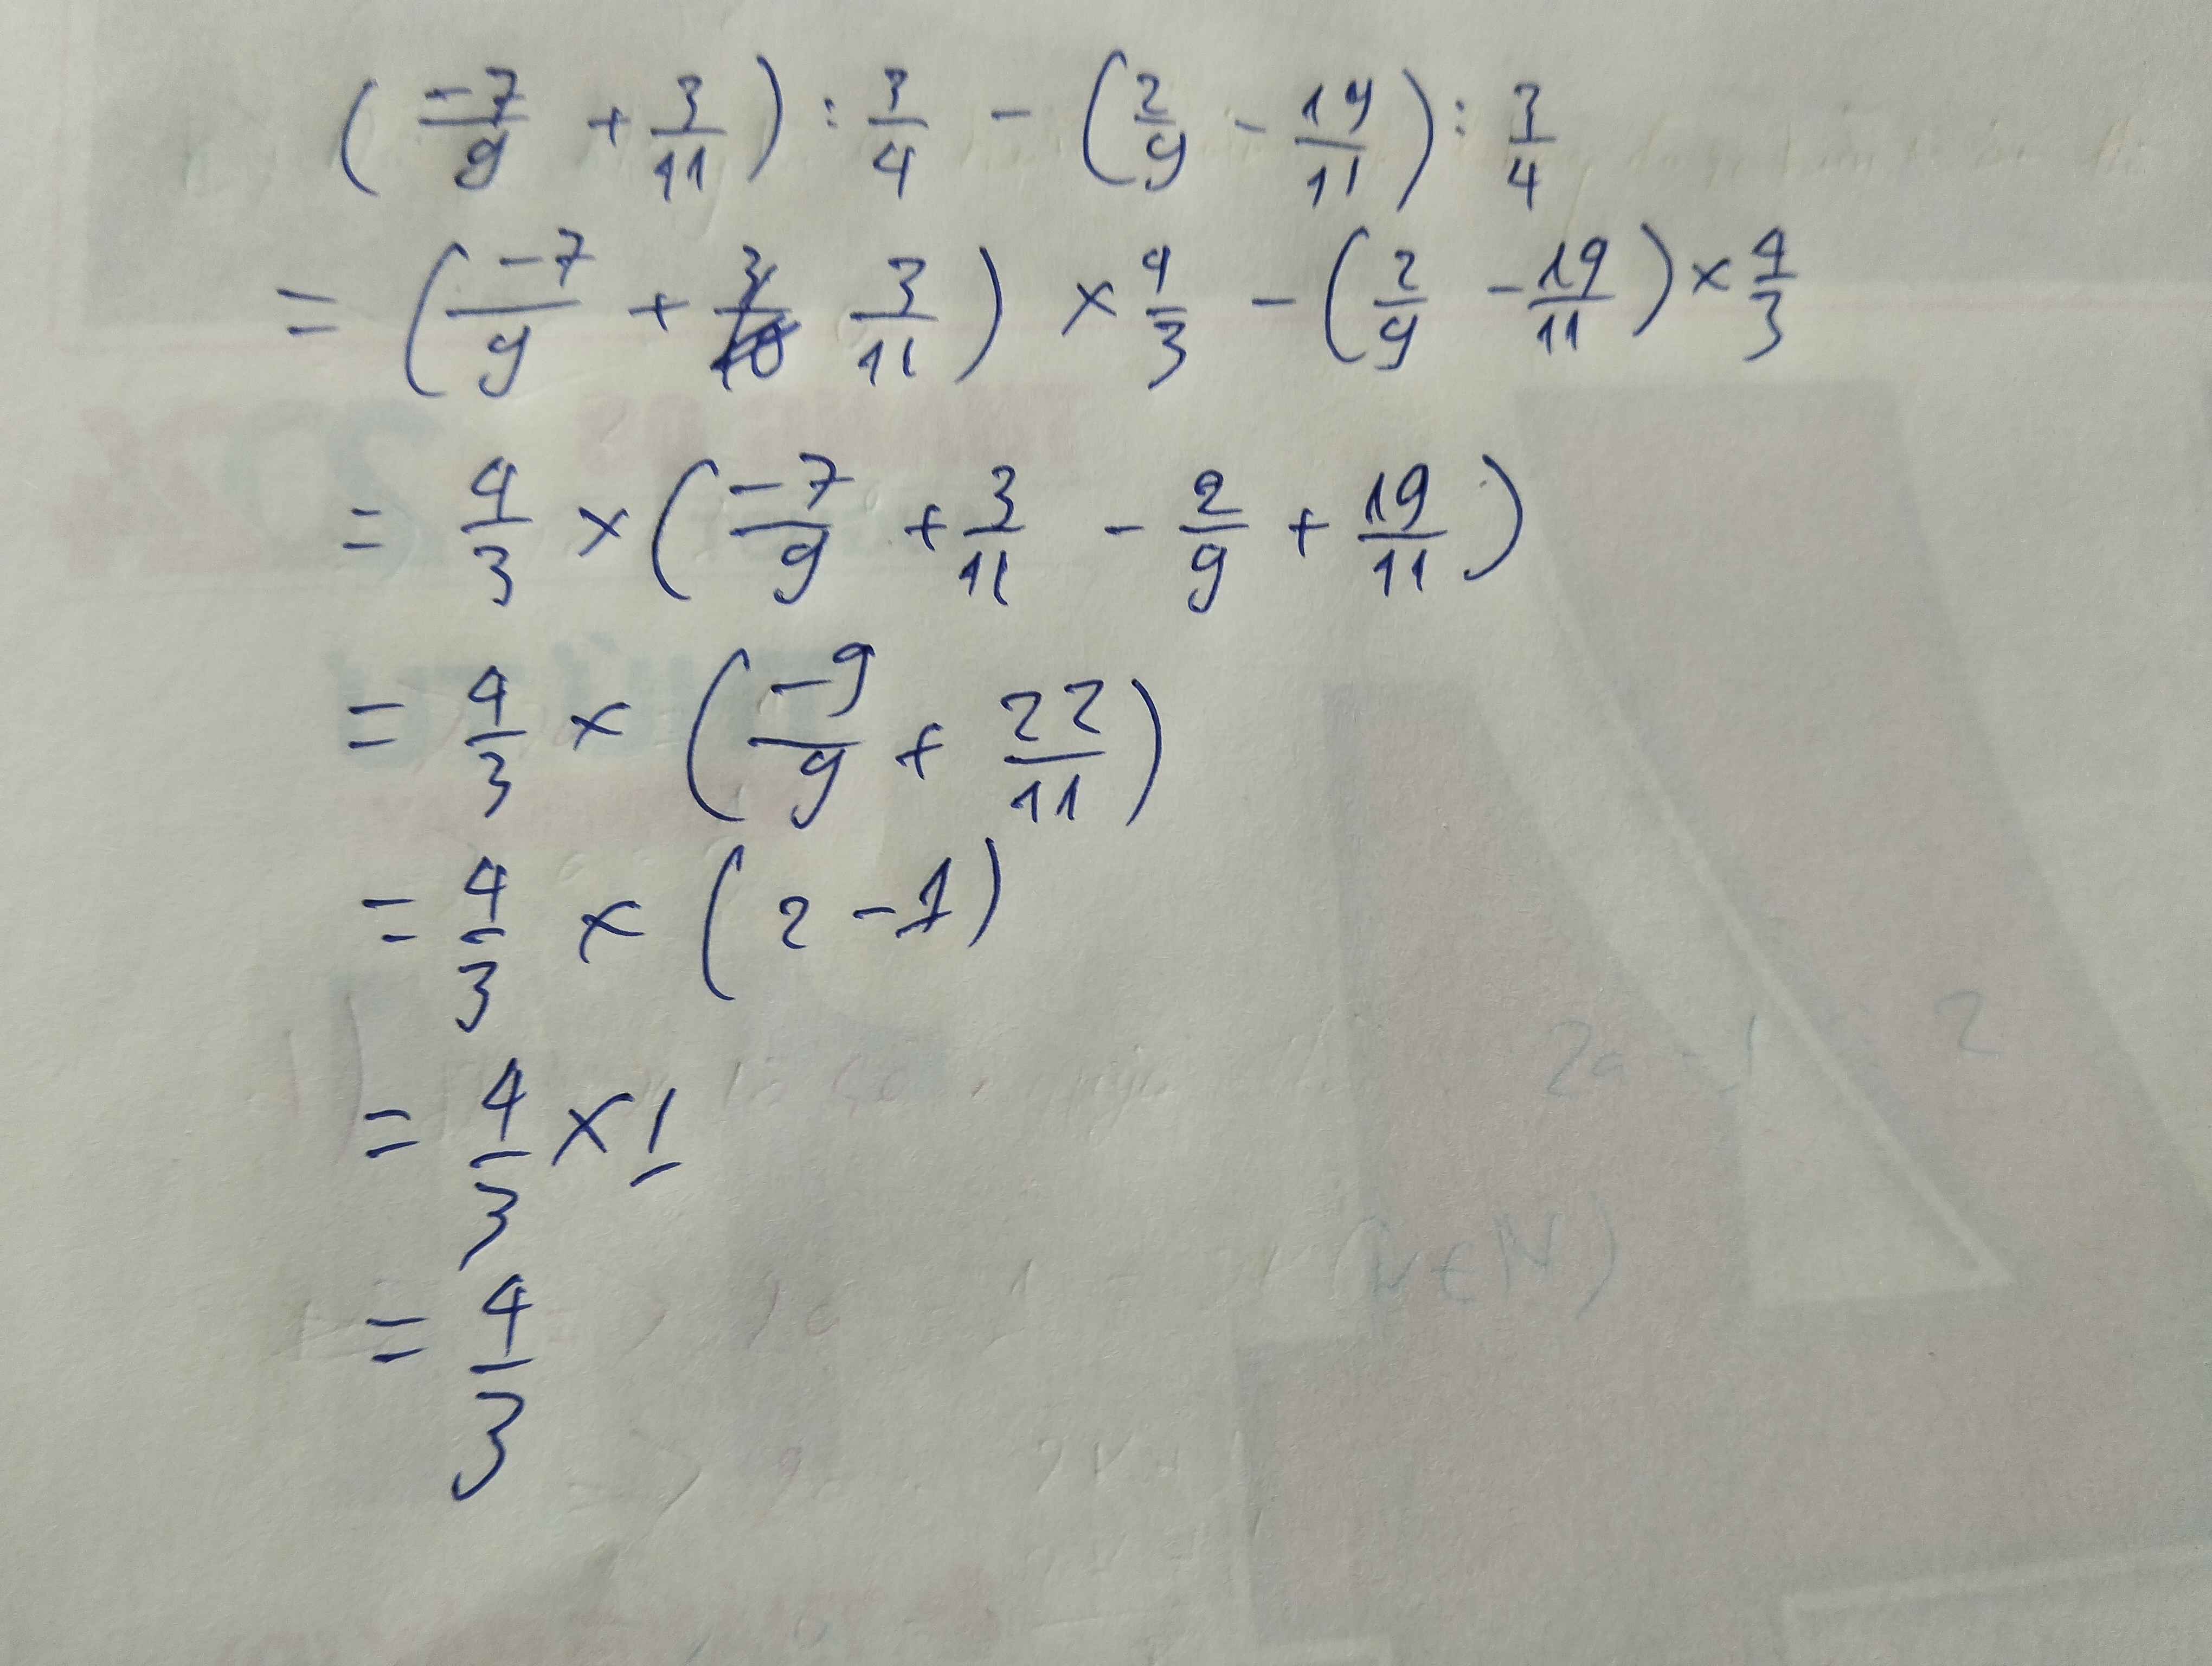 (-7/9 + 3/11) : 3/4 - (2/9 - 19/11) : 3/4
= (-7/9 + 3/11) × 4/3 - (2/9 - 19/11) × 4/3
= 4/3 × (-7/9 + 3/11 - 2/9 + 19/11)
= 4/3 × (-9/9 + 22/11)
= 4/3 × (2 - 1)
= 4/3 × 1
= 4/3